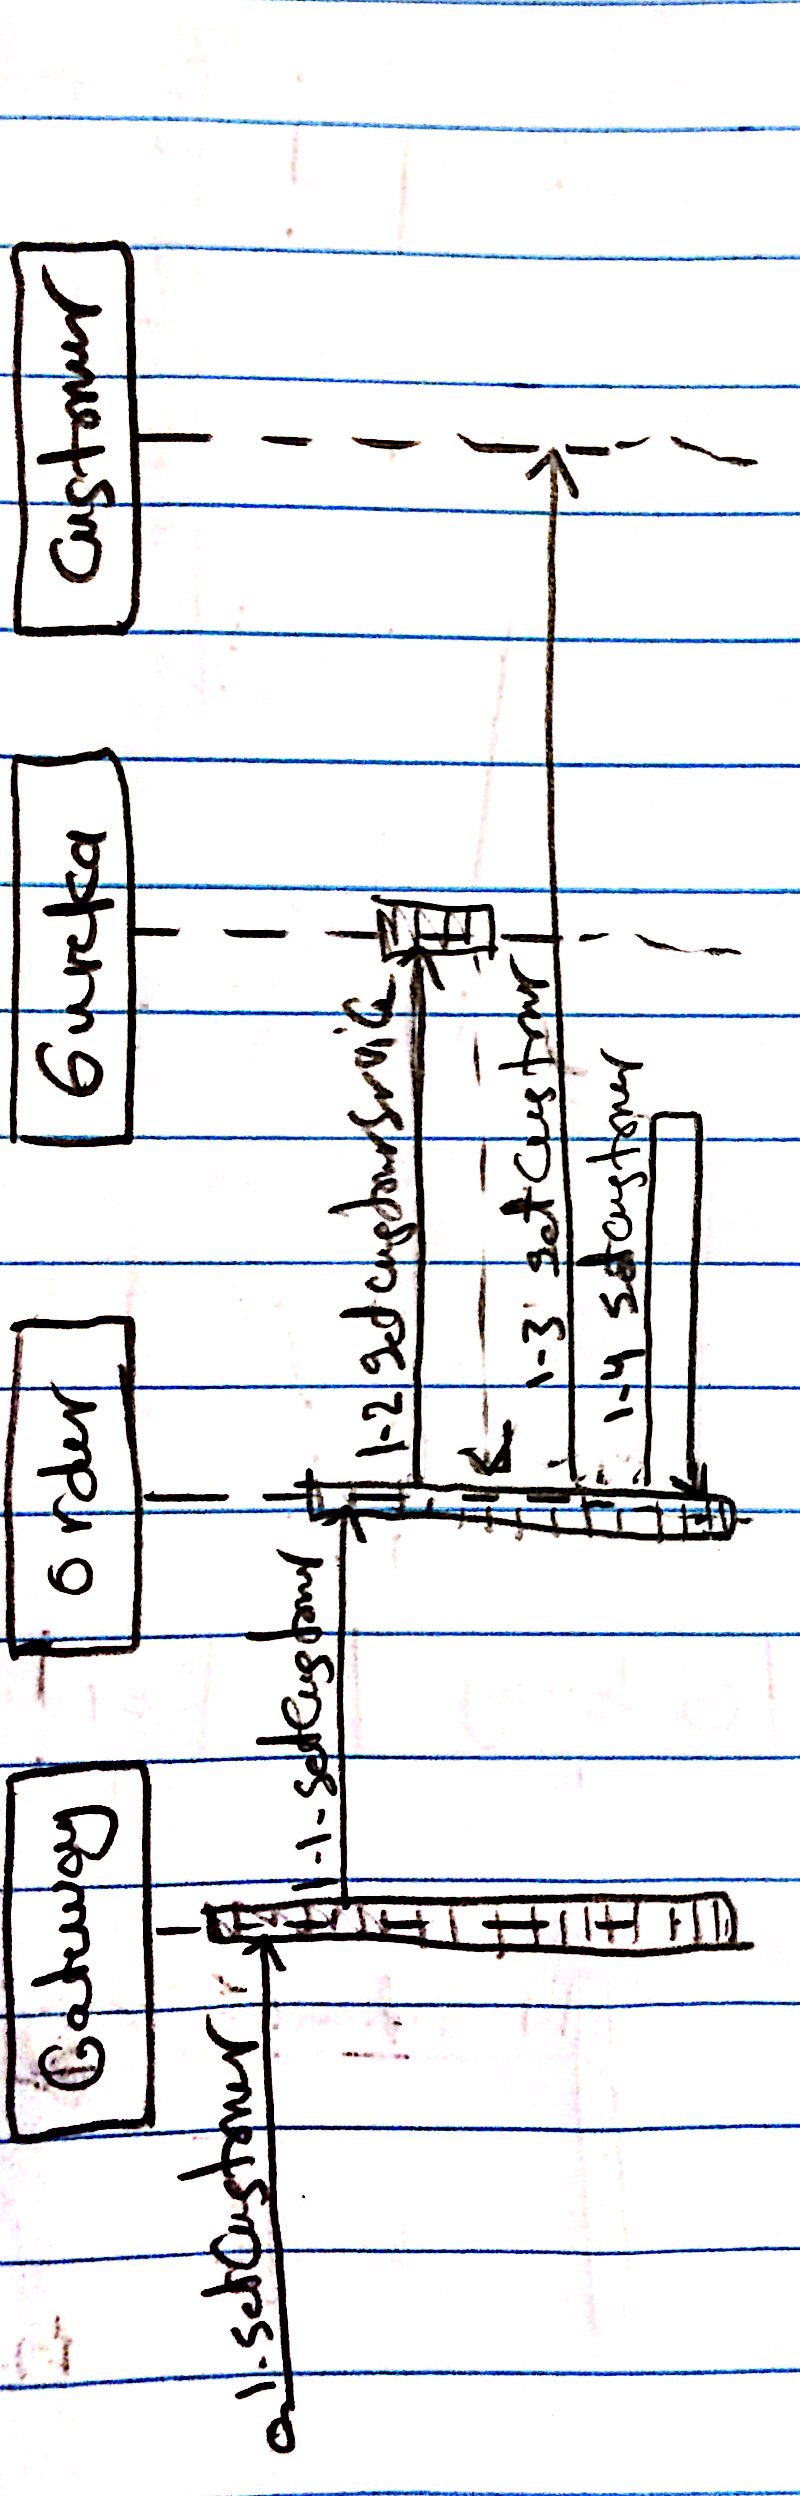 Gateway
Order
Eureka
Customer
1-setCustomer
1-1-setCustomer
1-2 getcustomerService
1-3 setCustomer
1-4 setcustomer